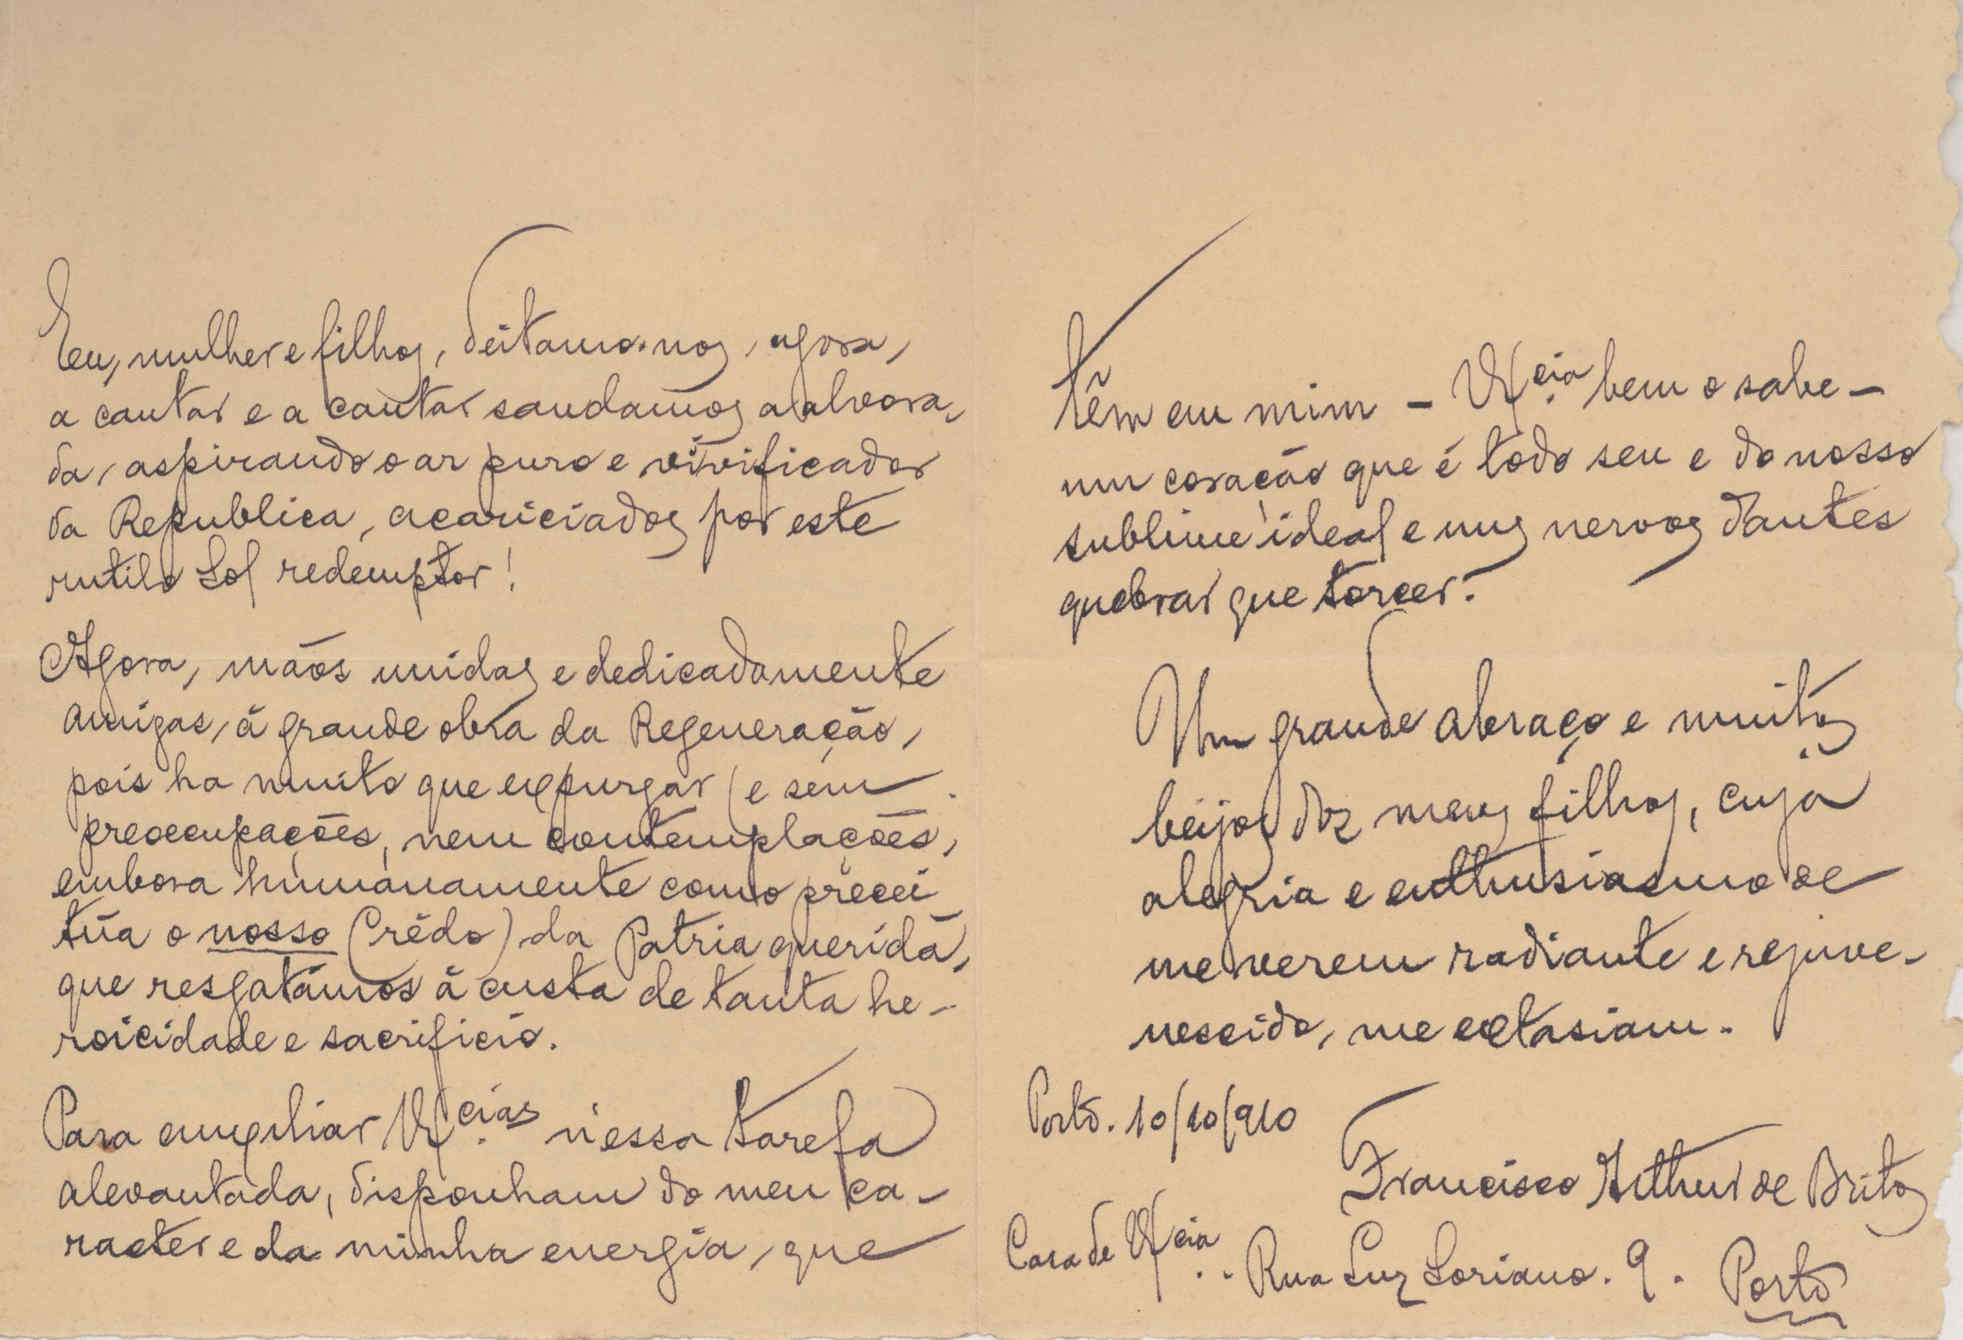 Eu, mulher e filhos, deitamo-nos, agora,
a cantar e a cantar saudamos a alvora-
da, aspirando o ar puro e vivificador
da Republica, acariciados por este
rutilo Sol redemptor!
Agora, mãos unidas e dedicadamente
amigas, á grande obra da Regeneração,
pois ha muito que expurgar (e sem
preoccupações, nem contemplações,
embora humanamente como precei
túa o nosso Crédo) da Patria querida,
que resgatámos á custa de tanta he-
roicidade e sacrificio.
Para auxiliar V. Ex.cias n'essa tarefa
alevantada, disponham do meu ca-
racter e da minha energia, que
têm em mim - V. Ex.cia bem o sabe -
um coração que é todo seu e do nosso
sublime ideal e uns nervos d'antes
quebrar que torcer.
Um grande abraço e muitos
beijos dos meus filhos, cuja
alegria e enthusiasmo de
me verem radiante e rejuve-
nescido, me extasiam.
Porto. 10/10/910
Francisco Arthur de Brito
Casa de V. Ex.cia.. Rua Luz Soriano. 9. Porto